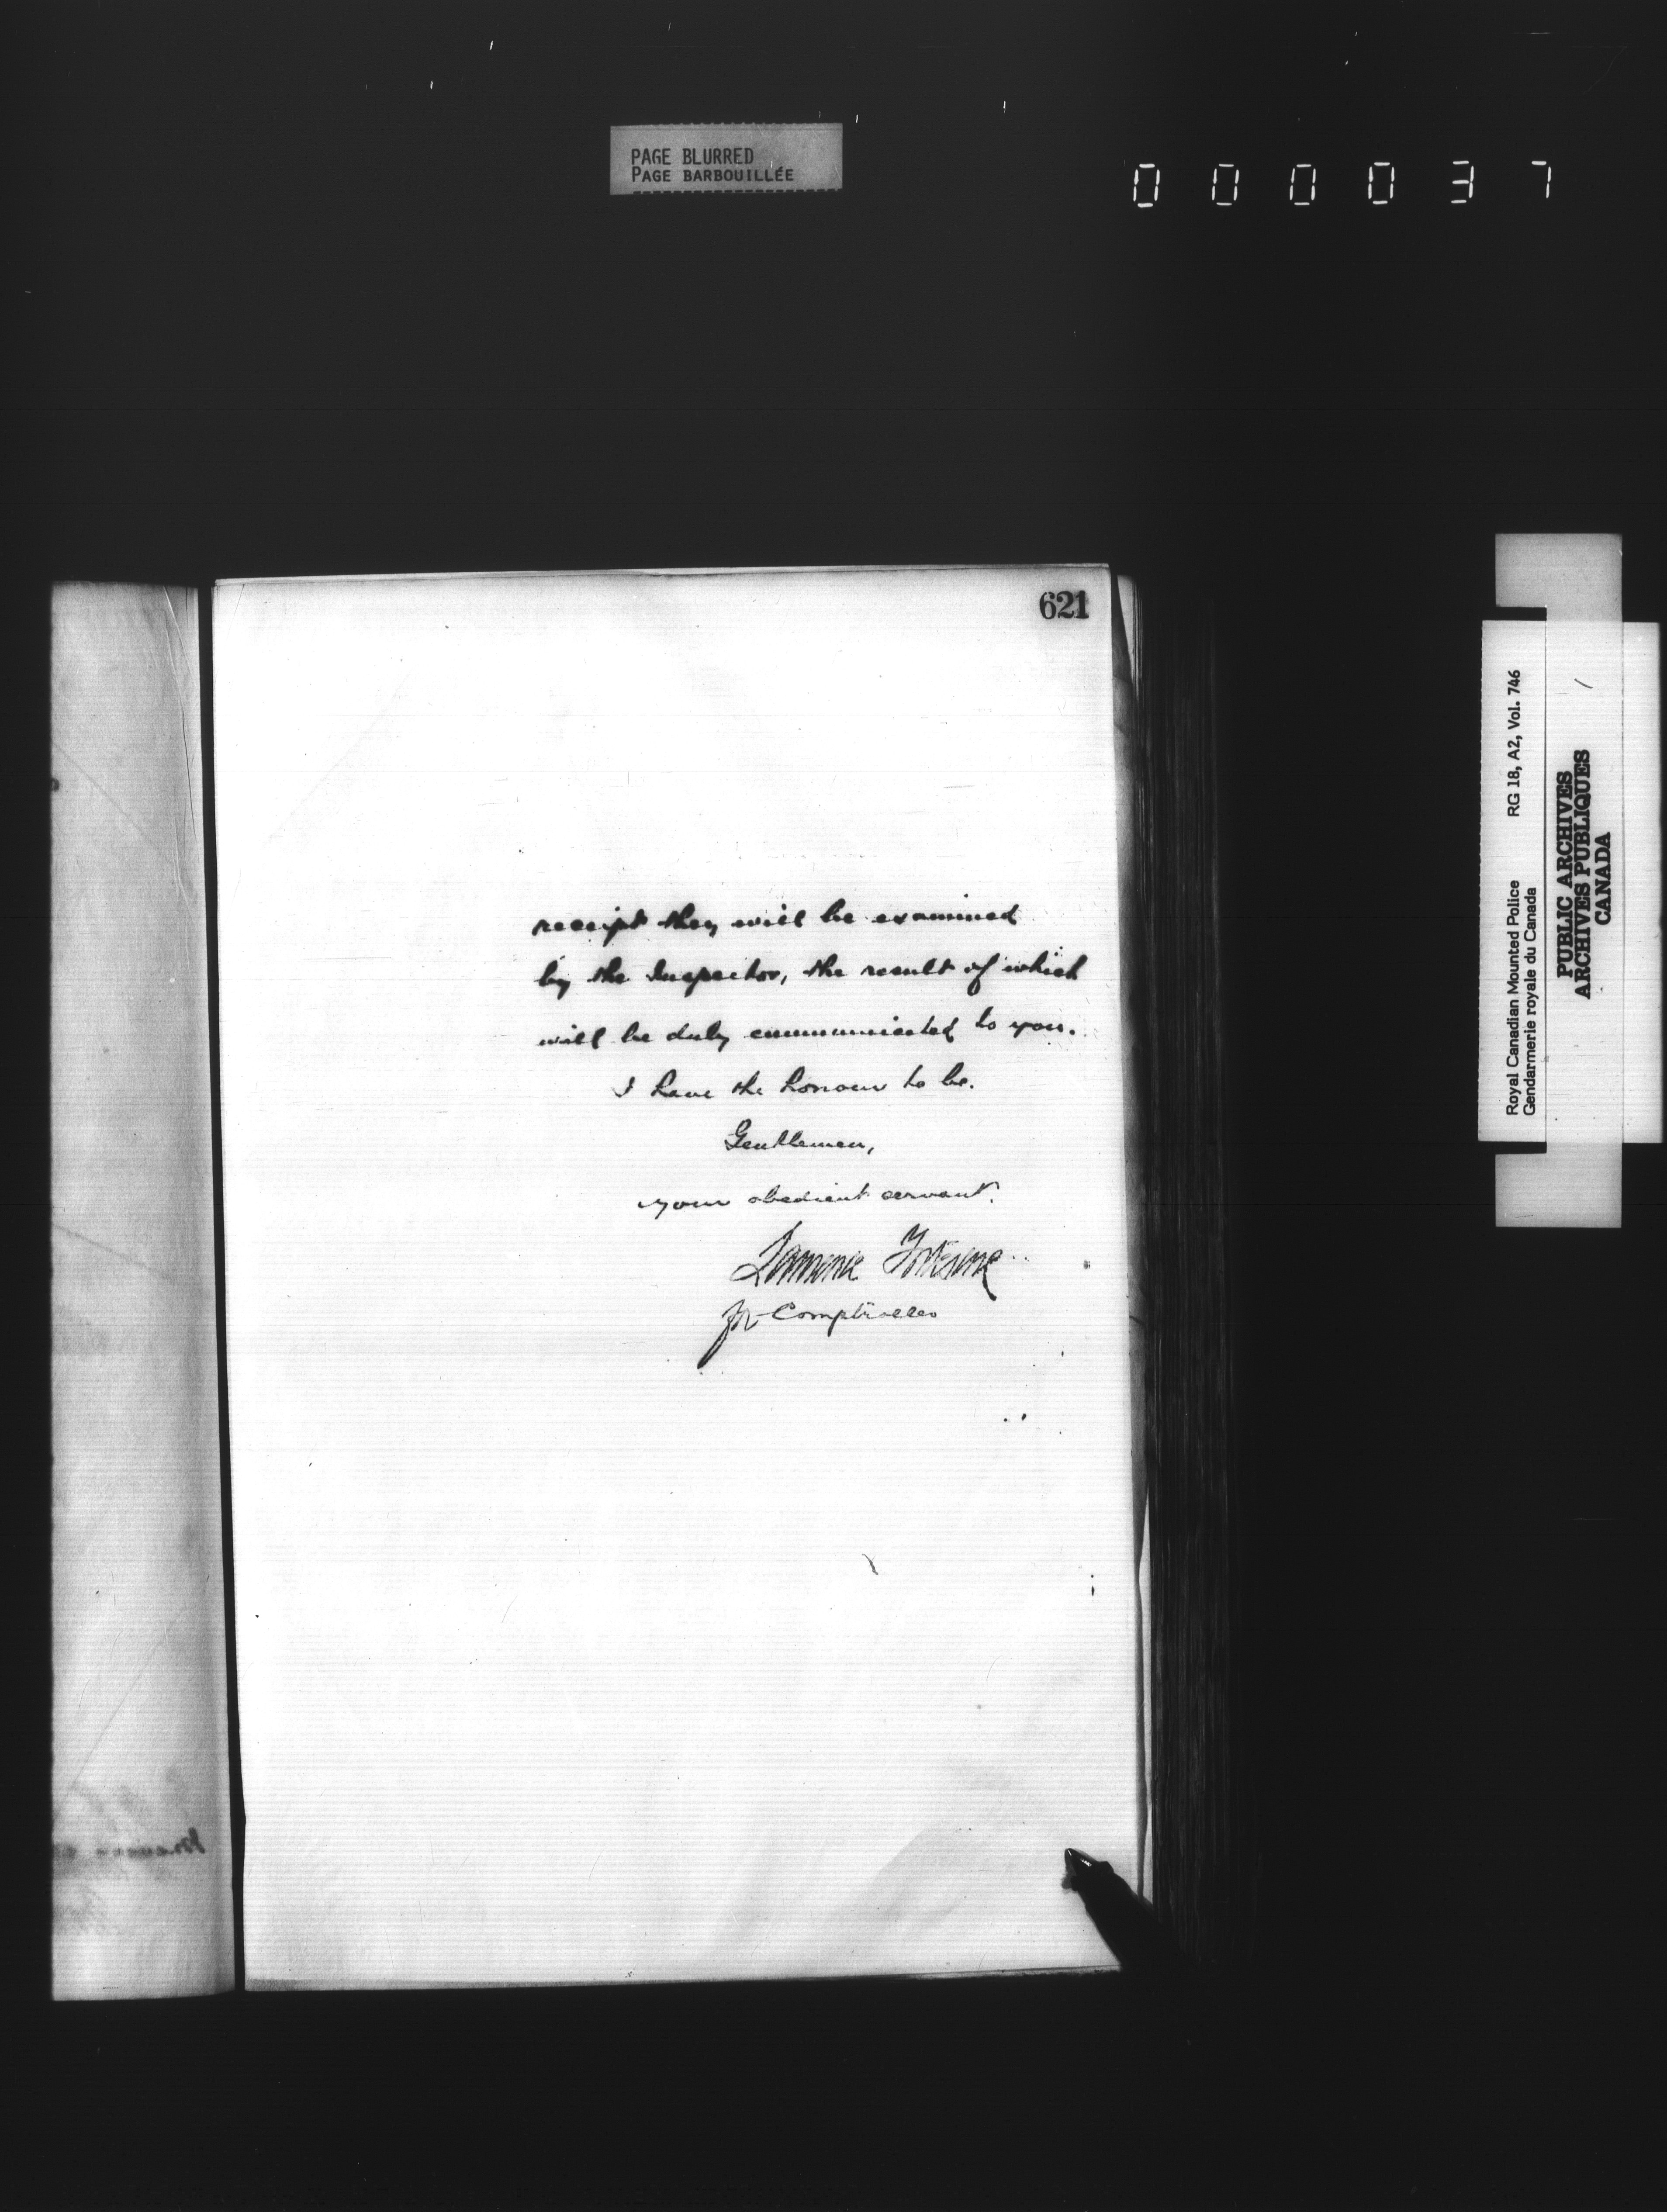 PAGE BLURRED
PAGE BARBOUILLÉE
000037
621
receipt they will be examined
by the Inspector, the result of which
will be duly communicated to you.
I have the honour to be.
Gentlemen,
your obedient servant.
Lawrence Fortescue
for Comptroller
Royal Canadian Mounted Police RG 18, A2, Vol. 746
Gendarmerie royale du Canada
PUBLIC ARCHIVES
ARCHIVES PUBLIQUES
CANADA